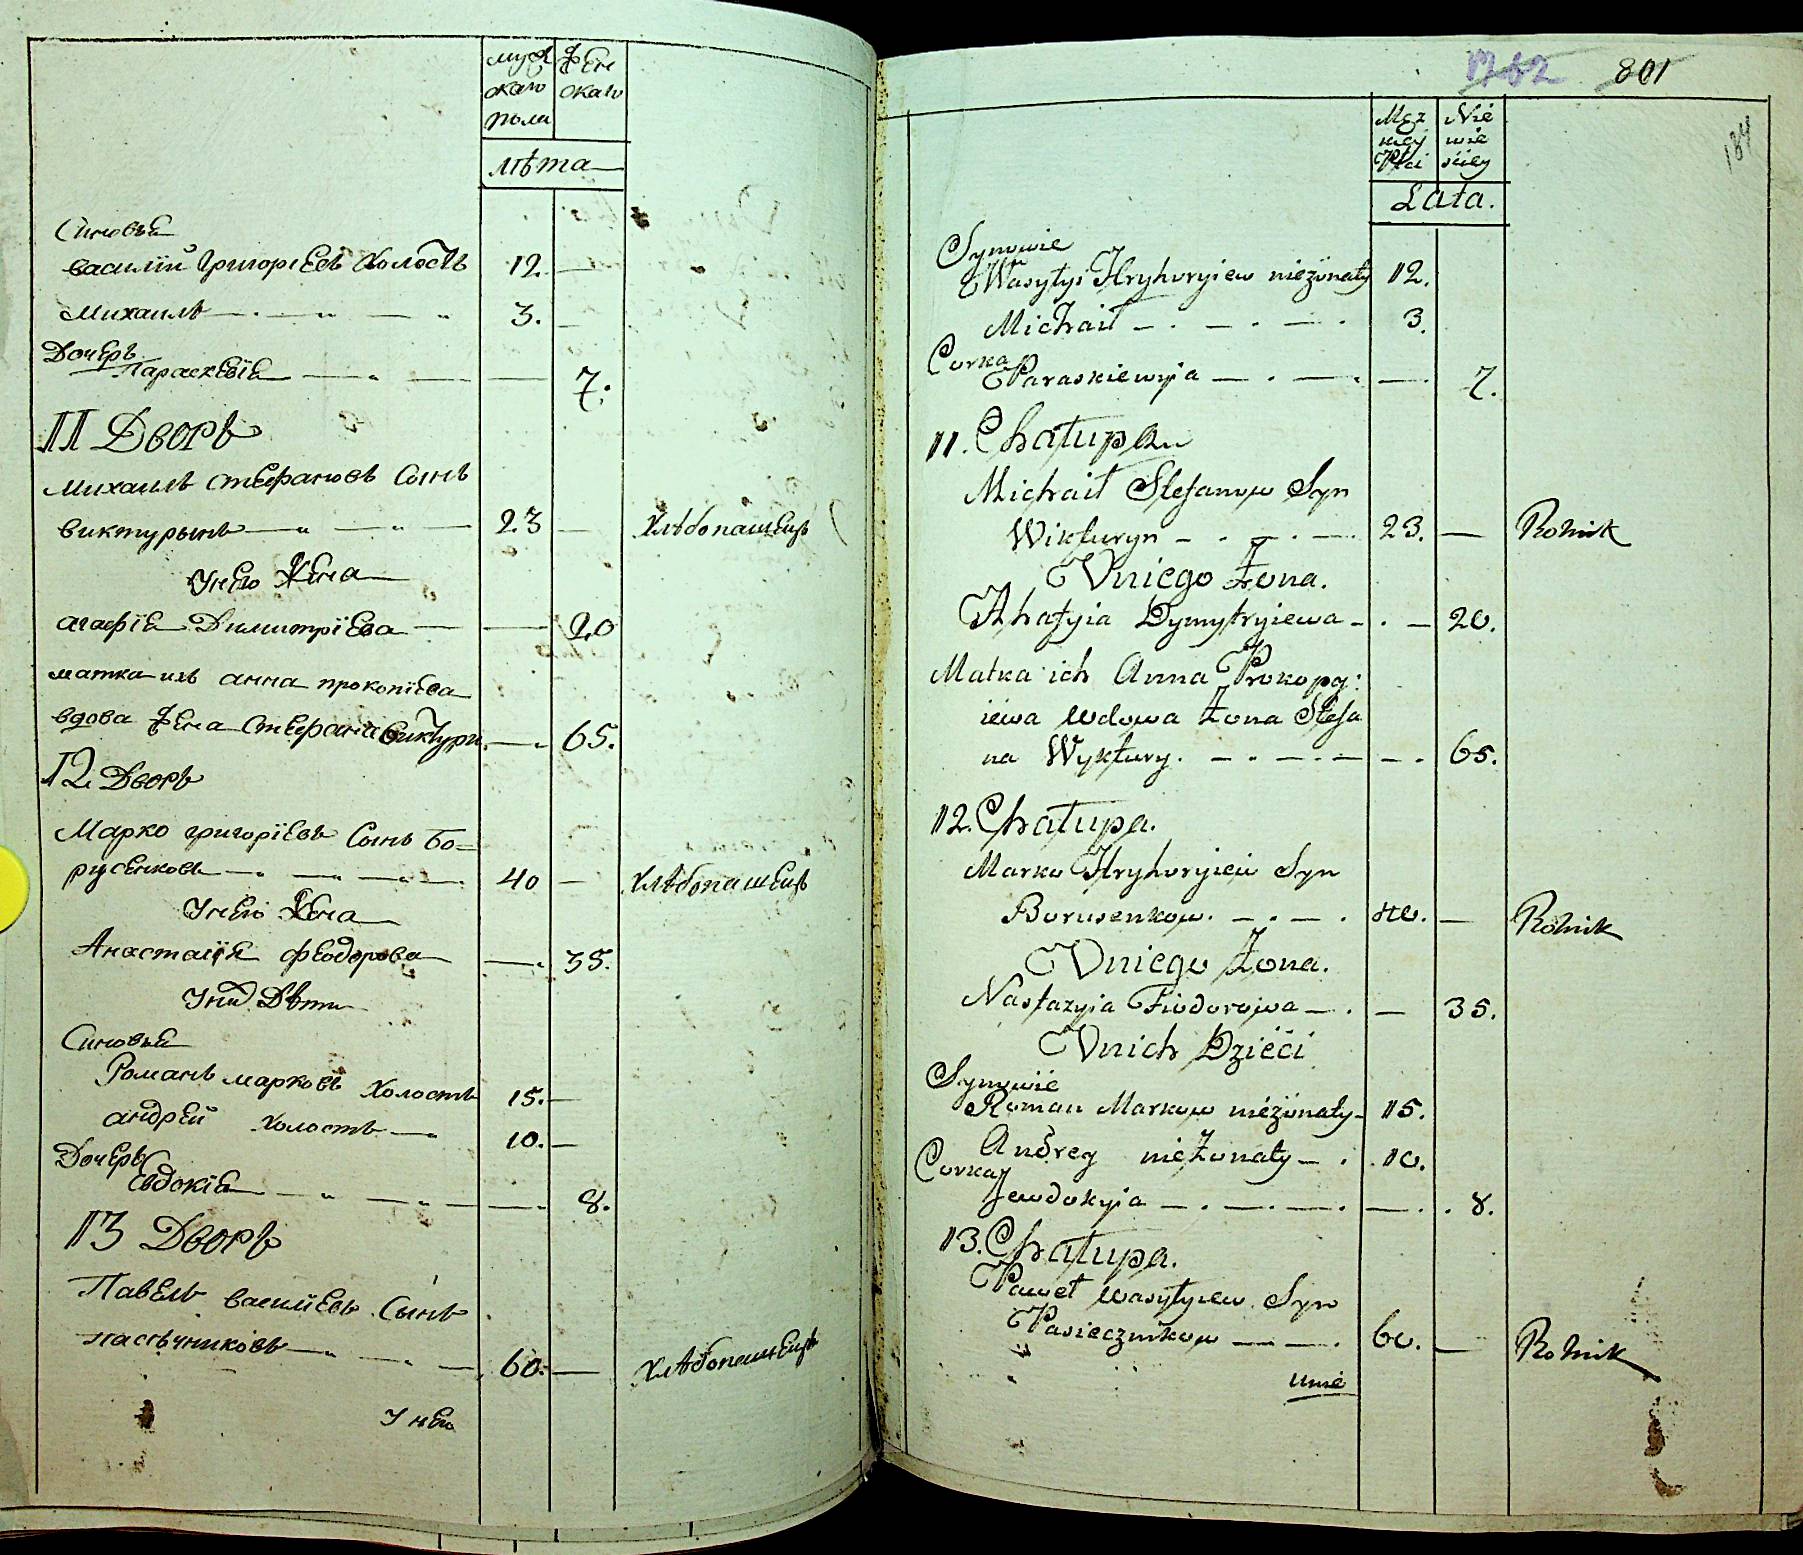 муж жен
скаго скаго
пола
лѣта
Синовья
василій григоріевъ холостъ 12. —
михаилъ — . — „ — „ 3. —
Дочерь
Параскевія — „ — — 7.
11 Дворъ
михаилъ стефановъ сынъ
виктурынъ — „ — „ — 23 — хлѣбопашецъ
У него жена
агафія Димитріева — — 20
матка ихъ анна прокопіева
вдова жена стефана виктури. — . 65.
12 Дворъ
Марко григоріевъ сынъ Бо=
русенковъ — . — . — . 40 — хлѣбопашецъ
У него жена
Анастасія феодорова — — . 35.
У них Дѣти
Синовья
Романъ марковъ холостъ 15. —
андрей холостъ — „ 10. —
Дочерь
Евдокія — „ — „ — . 8.
13 Дворъ
Павелъ василіевъ сынъ
пасѣчниковъ — . — . — 60. — хлѣбопашецъ
У него
1762 801
184
Męz Nie
kiey wie
Płci ściey
Lata.
Synowie
Wasylyi Hryhoryiew nieżonaty 12.
Michaił — . — . — . 3.
Curka
Paraskiewyia — . — . — . 7.
11. Chałupa
Michaił Stefanow Syn
Wikturyn — . — . — 23. — Rolnik
Vniego Żona.
Ahafyia Dymytryiewa — . — 20.
Matka ich Anna Prokopy:
iewa wdowa Żona Stefa
na Wyktury. — . — . — — . 65.
12. Chałupa.
Marko Hryhoryiew Syn
Borusenkow. — . — . 40. — Rolnik
Vniego Żona.
Nastazyia Fiodorowa — . — 35.
Vnich Dzieci
Synowie
Roman Markow nieżonaty — 15.
Andrey nieżonaty — . 10.
Curka
Jewdokyia — . — . — . — . 8.
13. Chałupa.
Paweł Wasylyiew Syn
Pasiecznikow — — . 60. — Rolnik
unie